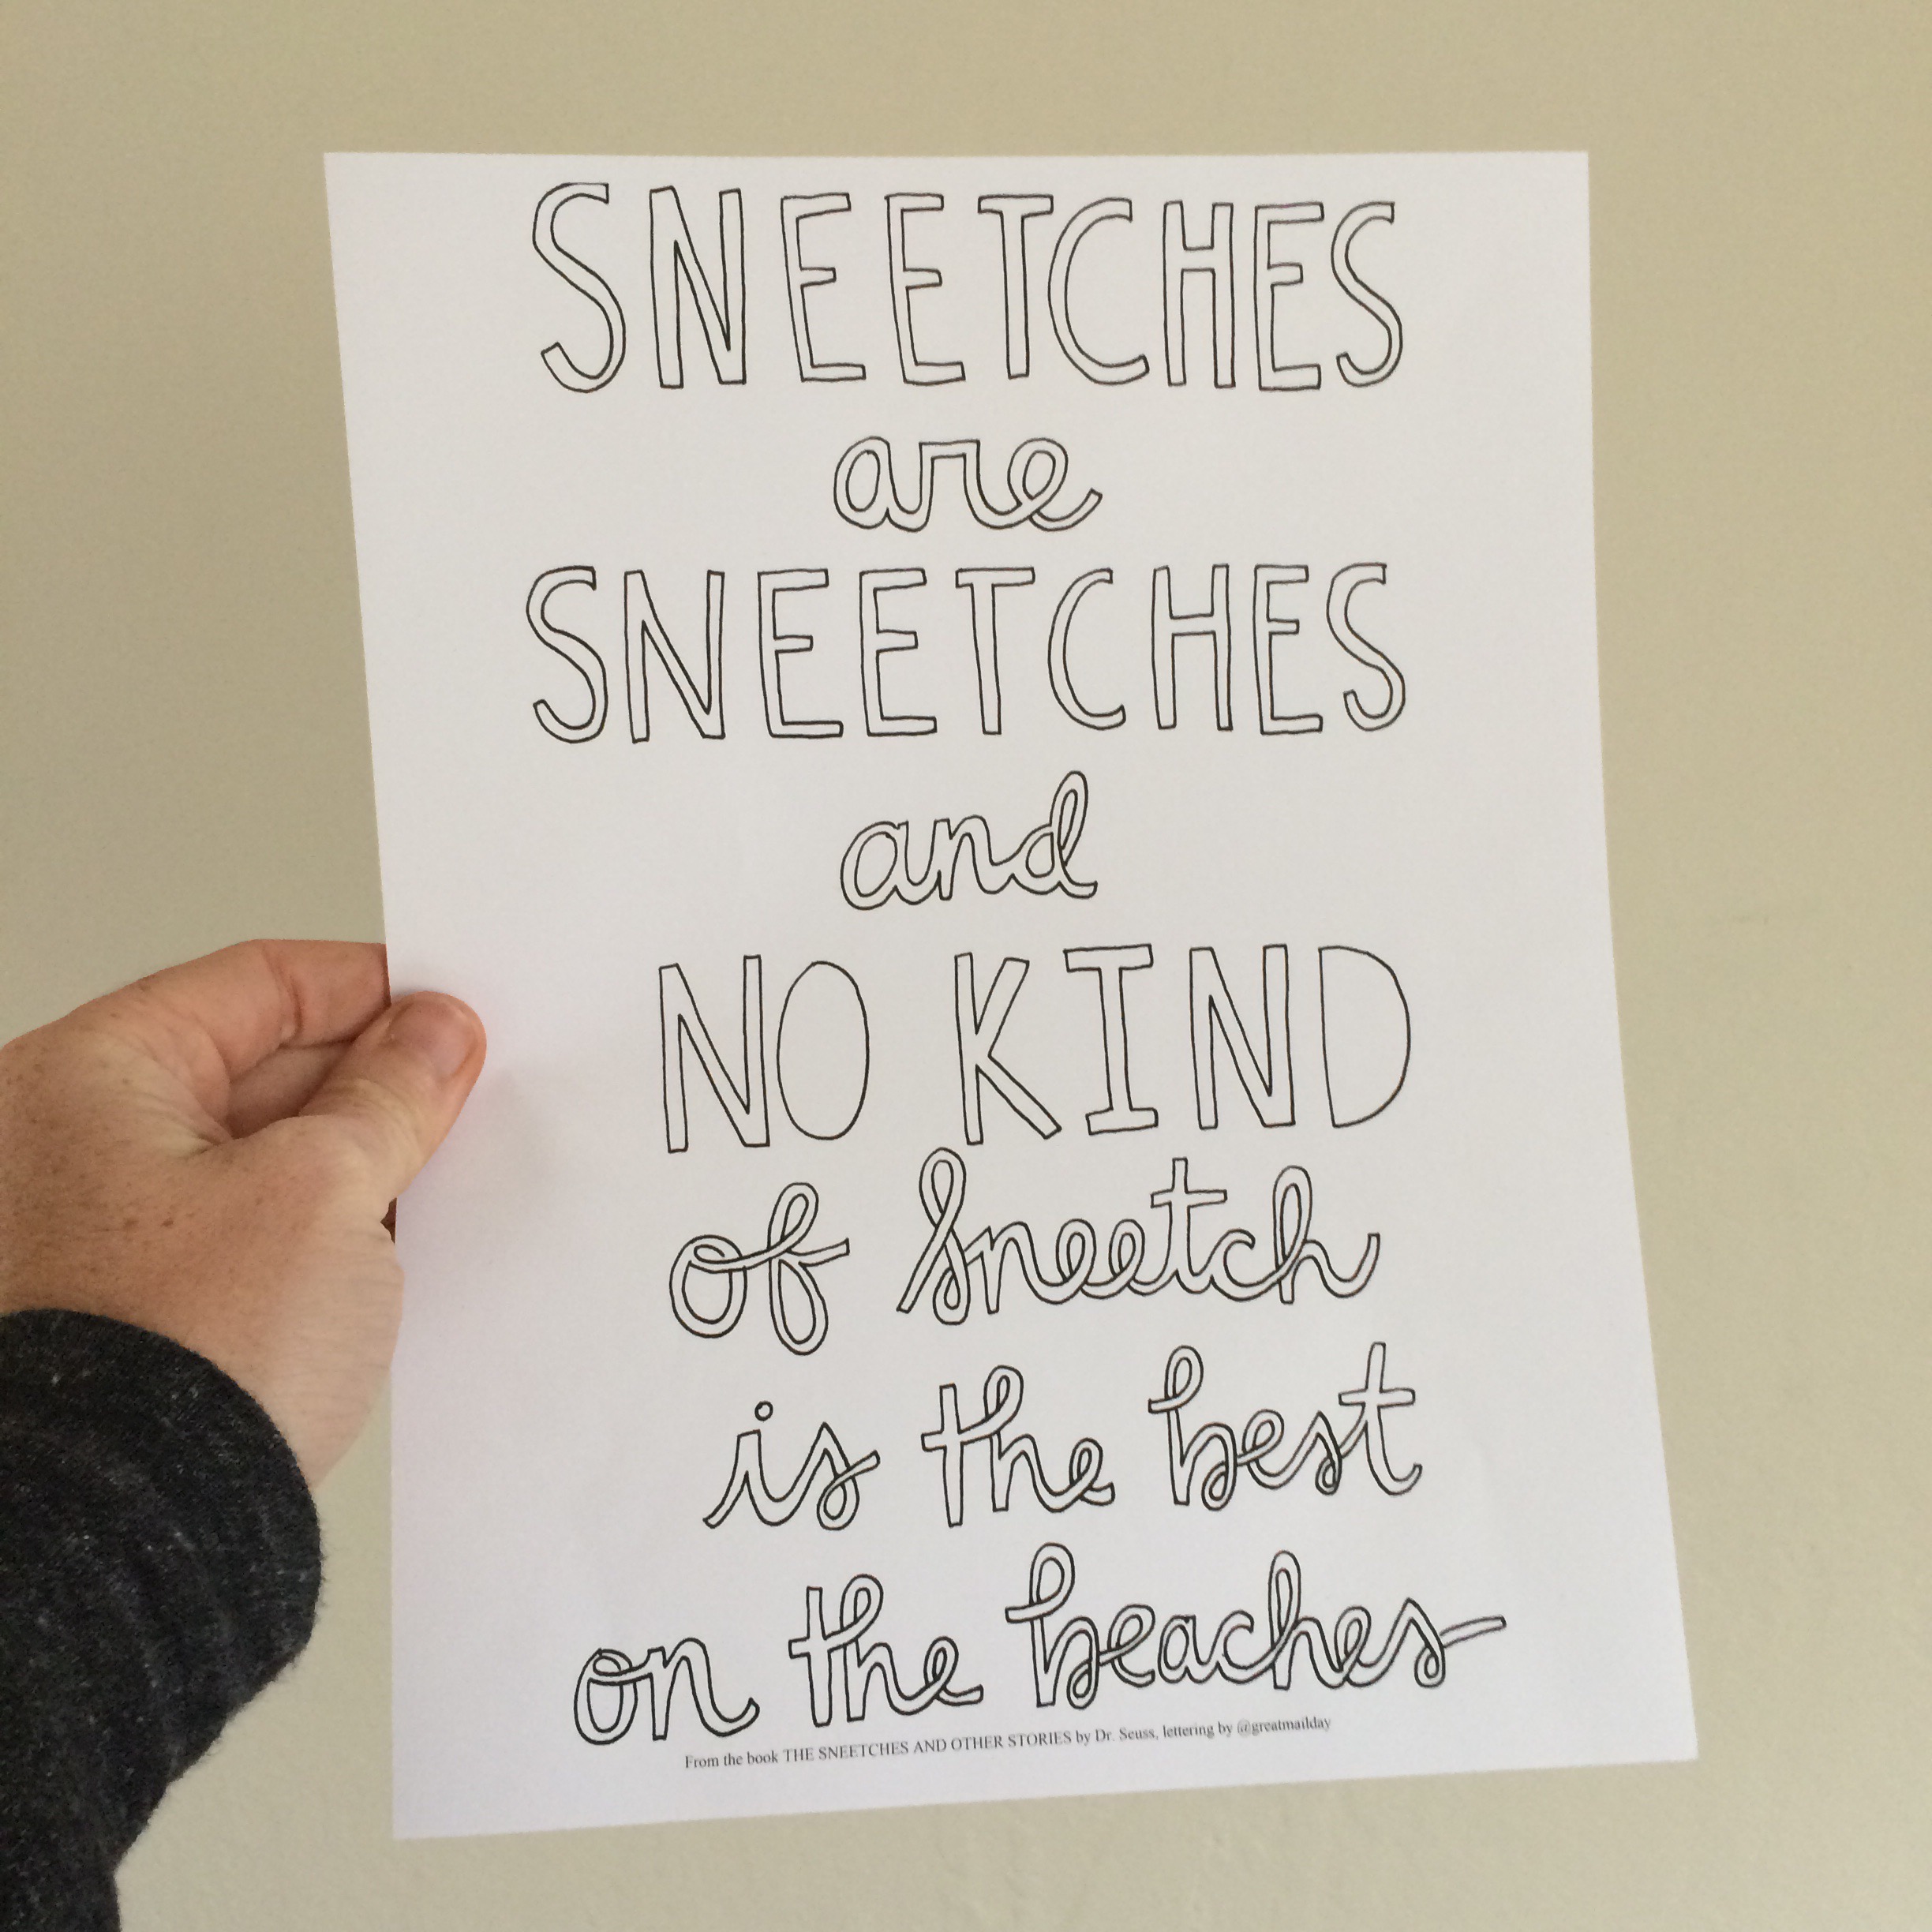 SNEETCHES
are
SNEETCHES
and
NO KIND
of Sneetch
is the best
on the beaches
From the book THE SNEETCHES AND OTHER STORIES by Dr. Seuss, lettering by @greatmailday